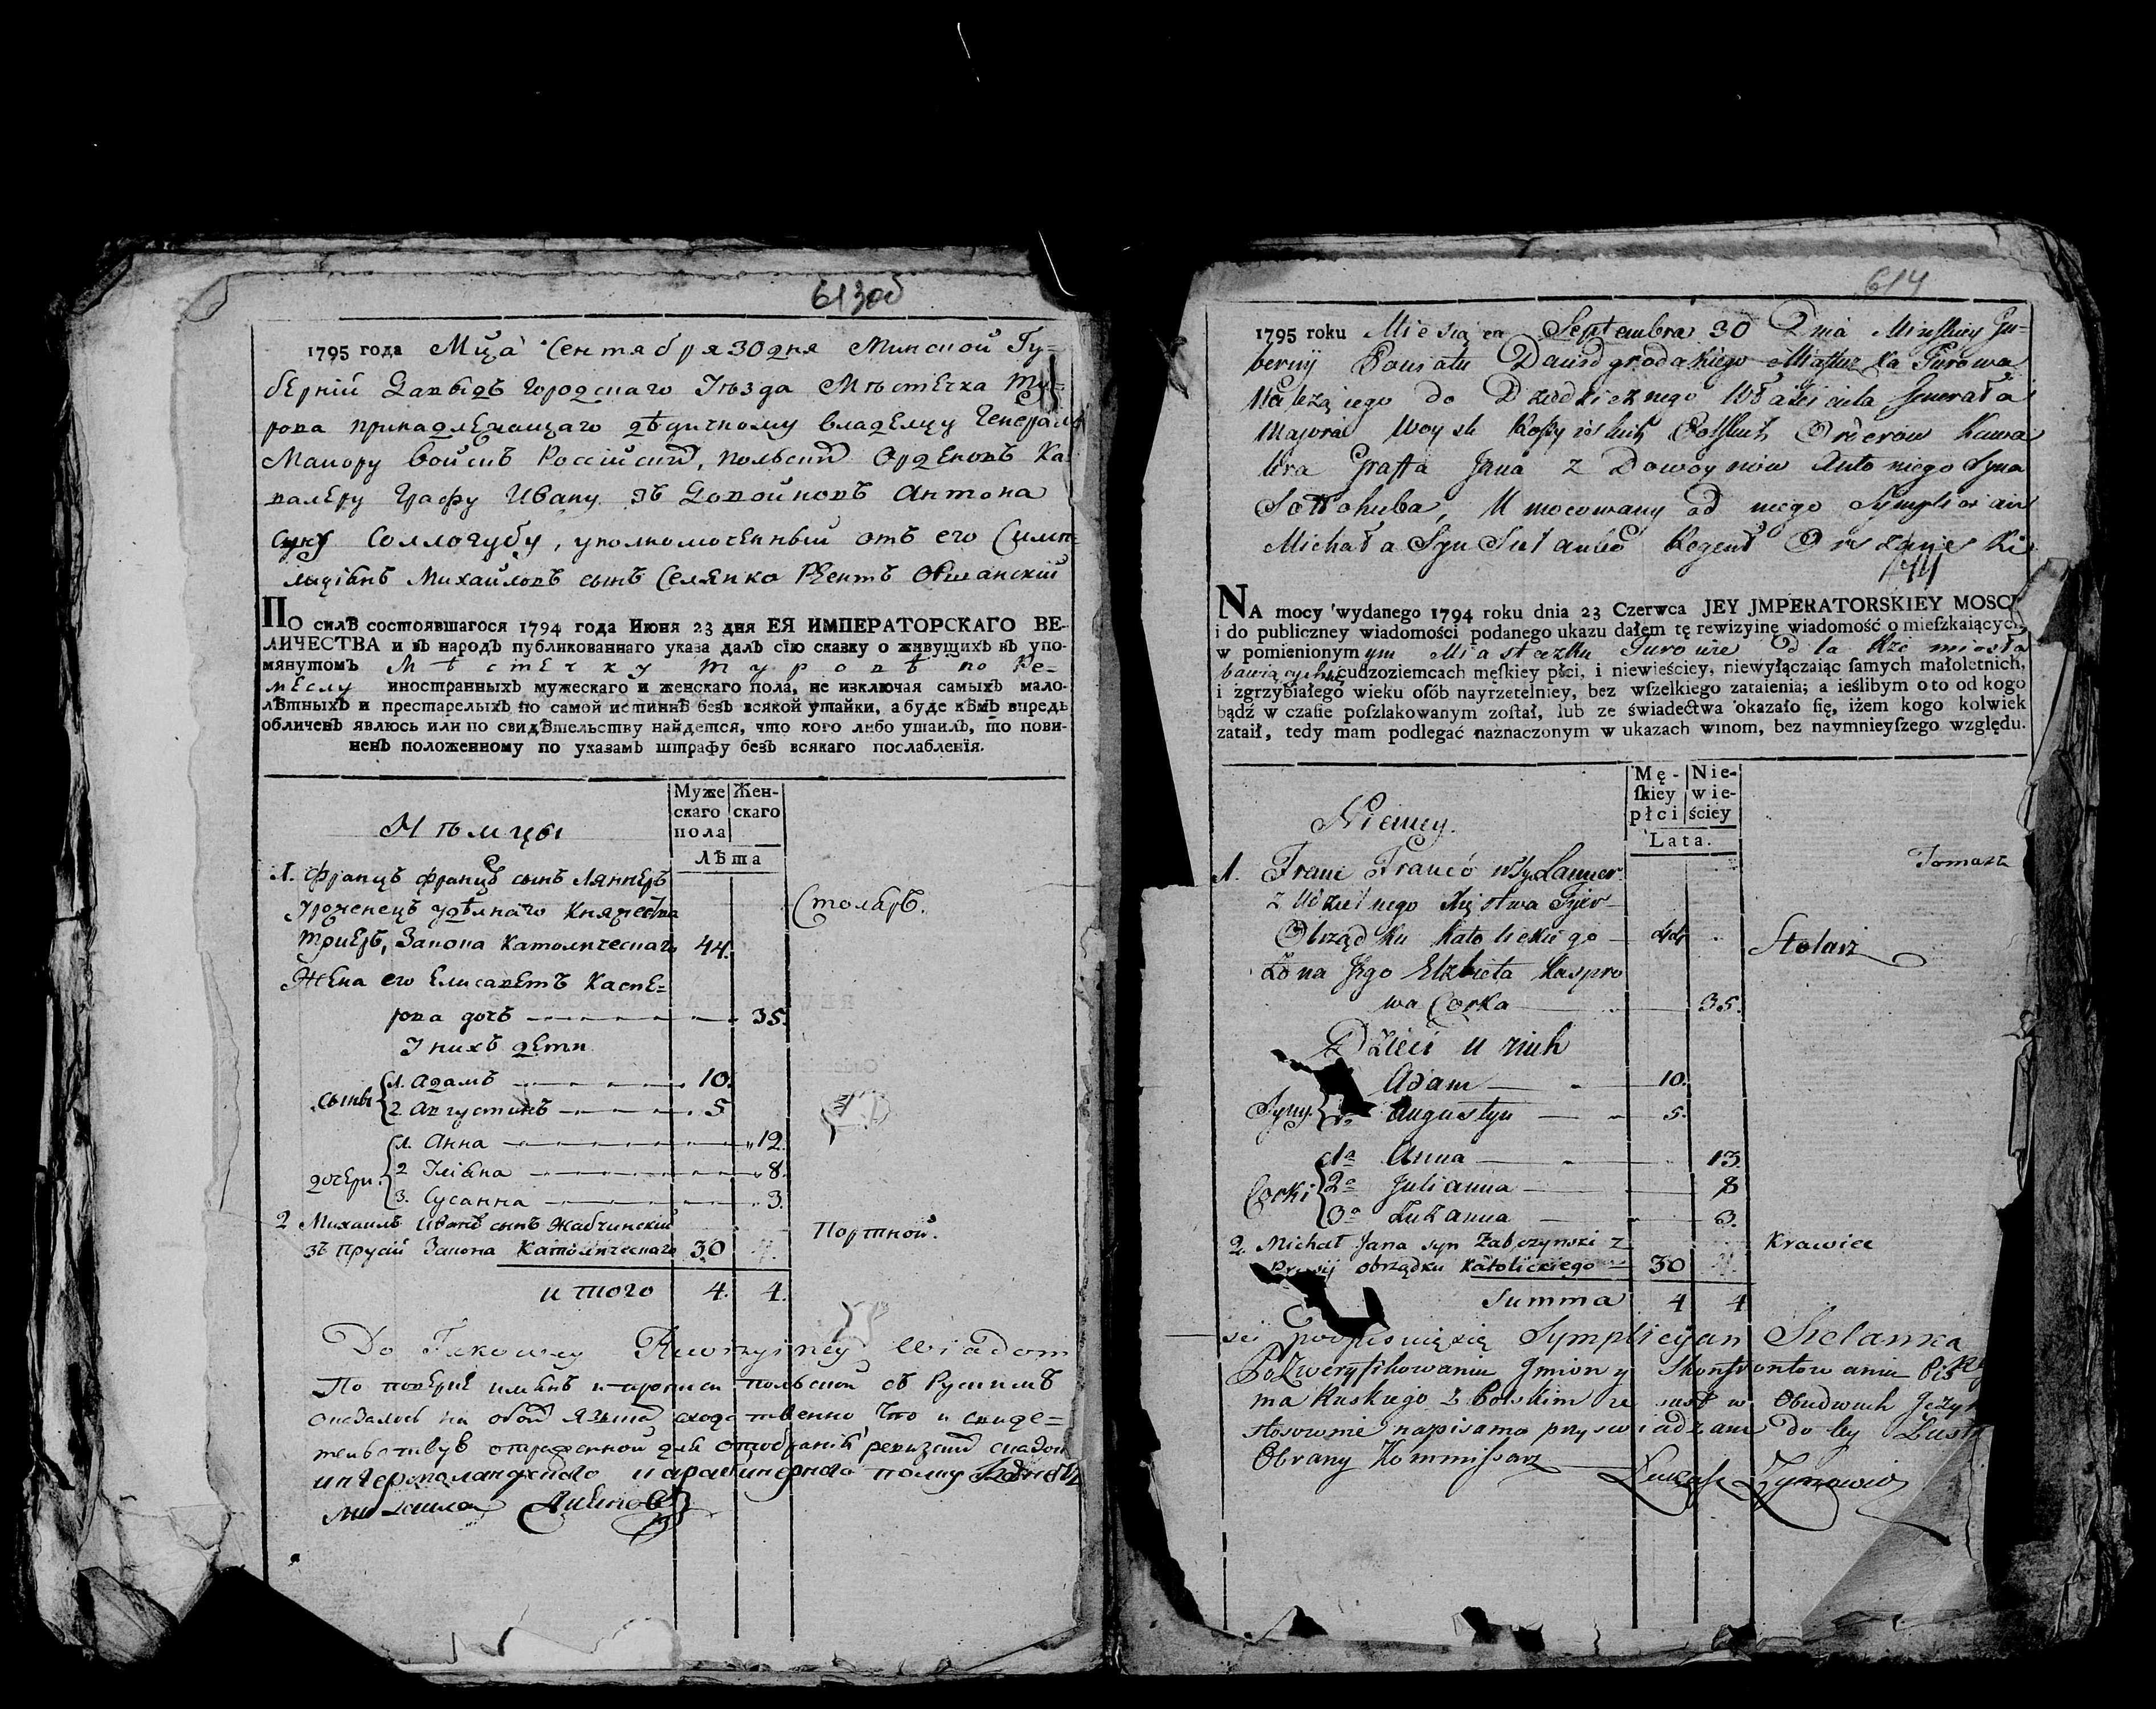 613об
1795 года Мца Сентября 30 дня Минской Гу=
берній Давыдъ городскаго Уѣзда Мѣстечка Ту=
рова принадлежащаго дѣдичному владелцу Генералъ
Маиору войскъ Россійский, польский Орденовъ Ка
валеру Графу Ивану зъ Довойновъ Антона
сyну Соллогубу, уполномоченный отъ его Симп=
лиціянъ Михайловъ сынъ Селянко Оршанскій
По силѣ состоявшагося 1794 года Июня 23 дня ЕЯ ИМПЕРАТОРСКАГО ВЕ-
ЛИЧЕСТВА и въ народъ публикованнаго указа далъ сїю сказку о живущихъ въ упо-
мянутомъ Мѣстечку Туровѣ по Ре=
меслу иностранныхъ мужескаго и женскаго пола, не изключая самыхъ мало-
лѣтныхъ и престарелыхъ по самой истиннѣ безъ всякой утайки, а буде кѣмъ впредь
обличенъ явлюсь или по свидѣтельству найдется, что кого либо утаилъ, то пови-
ненъ положенному по указамъ штрафу безъ всякаго послабленїя.
Муже скаго пола Жен- скаго
Нѣмцы
Лѣта
1. Францъ Францъ сынъ Ляннеръ
Уроженецъ удѣлнаго Княжества Столяръ.
Триеръ, Закона Католическаго 44.
Жена его Елисаветъ Каспе=
рова дочь 35.
У нихъ дети
сыны 1. Адамъ 10.
2 Августинъ 5
дочери 1. Анна 12.
2 Уліяна 8.
3. Сусанна 3.
2 Михаилъ Иванъ сынъ Жабчинскій Портной.
зъ Прусій Закона Католическаго 30
итого 4. 4.
Do Takowey Rewizyiney Wiadom
По поверке имянъ и прописи польской съ Рускимъ
оказалось на обой языка сходственно, Что и свиде=
полку
614
1795 roku Miesiąca Septembra 30 Dnia Minskiey Gu-
bernij Powiatu Dawidgrodzkiego Miasteczka Turowa
Należącego do Dziedzicznego Właściciela Generała
Majora Woysk Rossyiskich Polskich Orderow Kawa
lera Graffa Jana z Dowoynow Antoniego Syna
Sołłohuba, Umocowany od niego Symplician
Michała Syn Regent Orszanski
NA mocy wydanego 1794 roku dnia 23 Czerwca JEY JMPERATORSKIEY MOSCI
i do publiczney wiadomości podanego ukazu dałem tę rewizyinę wiadomość o mieſzkaiących
w pomienionym ym Miasteczku Turowie Dla Rzemiosła
bawiących się cudzoziemcach męſkiey płci, i niewieściey, niewyłączaiąc ſamych małoletnich,
i zgrzybiałego wieku oſób nayrzetelniey, bez wſzelkiego zataienia; a ieślibym o to od kogo
bądź w czaſie poſzlakowanym zoſtał, lub ze świadectwa okazało ſię, iżem kogo kolwiek
zataił, tedy mam podlegać naznaczonym w ukazach winom, bez naymnieyſzego względu.
Mę- ſkiey płci Nie- wie- ściey
Niemcy.
Lata.
1. Franc Francow Sy Lanner Tomasz
z Udzielnego Xięstwa Tyier
Obrządku Katolickiego 44 Stolarz
Żona Jego Elzbieta Kaspro
wa Corka 35.
Dzieci u nich
Syny Adam 10.
Augustyn 5.
Corki 1a Anna 13.
2a Julianna 8
3a Zuzanna 3.
2. Michał Jana syn Zabczynski z Krawiec
obrządku Katolickiego 30
Summa 4 4
sci podpisuię się Symplicyan Sielanka
Po Zweryfikowaniu Jmion y Skonfrontowaniu Pis
ma Ruskiego z Polskim ze sąsć w Obudwuch Jezyk
stosownie napisama przyswiadzam do tey Lustr
Obrany Kommissarz